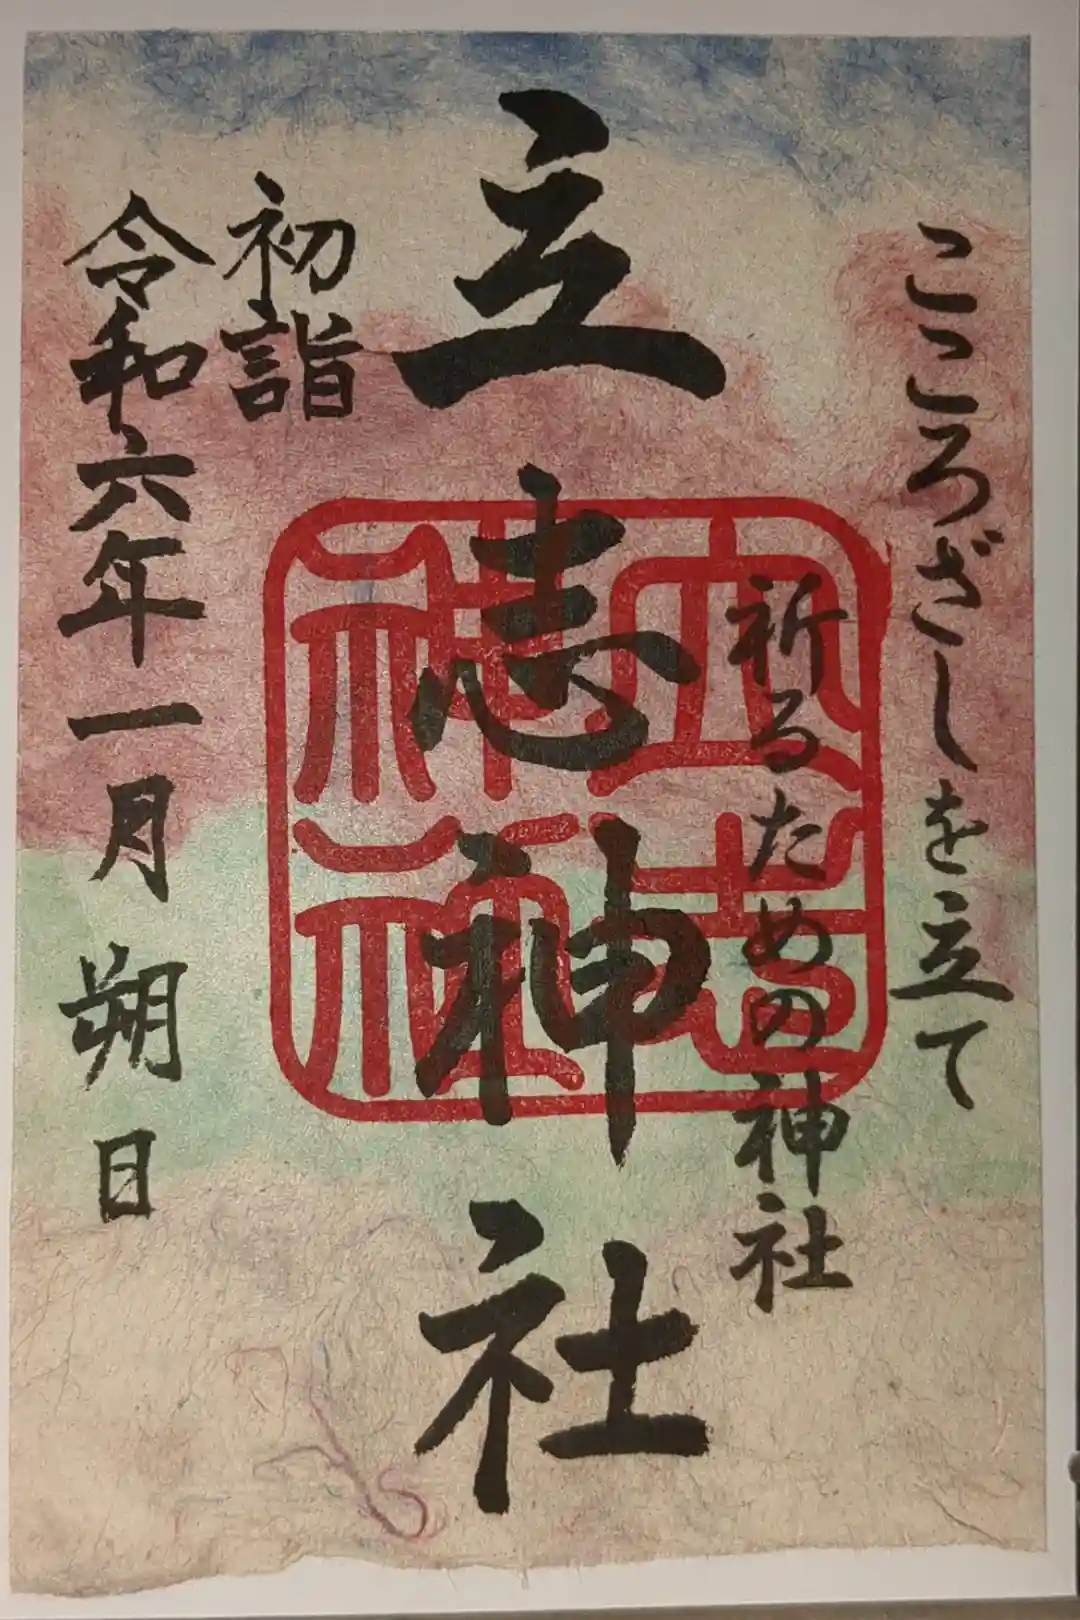 こころざしを立て
祈るための神社
立志神社
立志神社
初詣
令和六年一月朔日